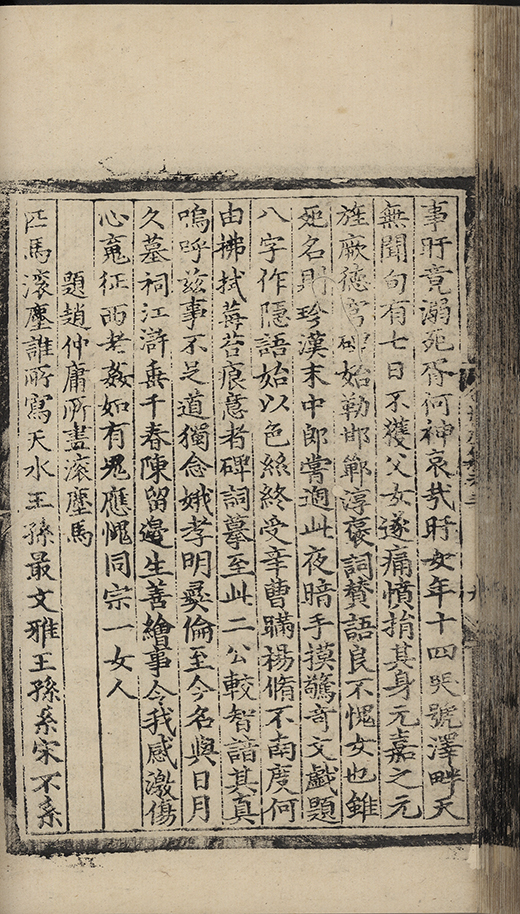 事盱竟溺死胥何神哀哉盱女年十四哭號澤畔天
無聞旬有七日不獲父女遂痛憤捐其身元嘉之元
旌厥德窵碑始勒邯鄲淳褒詞贊語良不愧女也雖
死名則珍漢末中郎嘗過此夜暗手摸驚奇文戲題
八字作隱語始以色絲終受辛曹瞞楊脩不南度何
由拂拭莓苔痕意者碑詞摹至此二公較智諳其真
嗚呼兹事不足道獨念娥孝明彞倫至今名與日月
久墓祠江滸垂千春陳留邊生善繪事令我感激傷
心䰟征西老姦如有鬼應愧同宗一女人
題趙仲庸所畫滚塵馬
匹馬滚塵誰所寫天水王孫最文雅王孫系宋不系